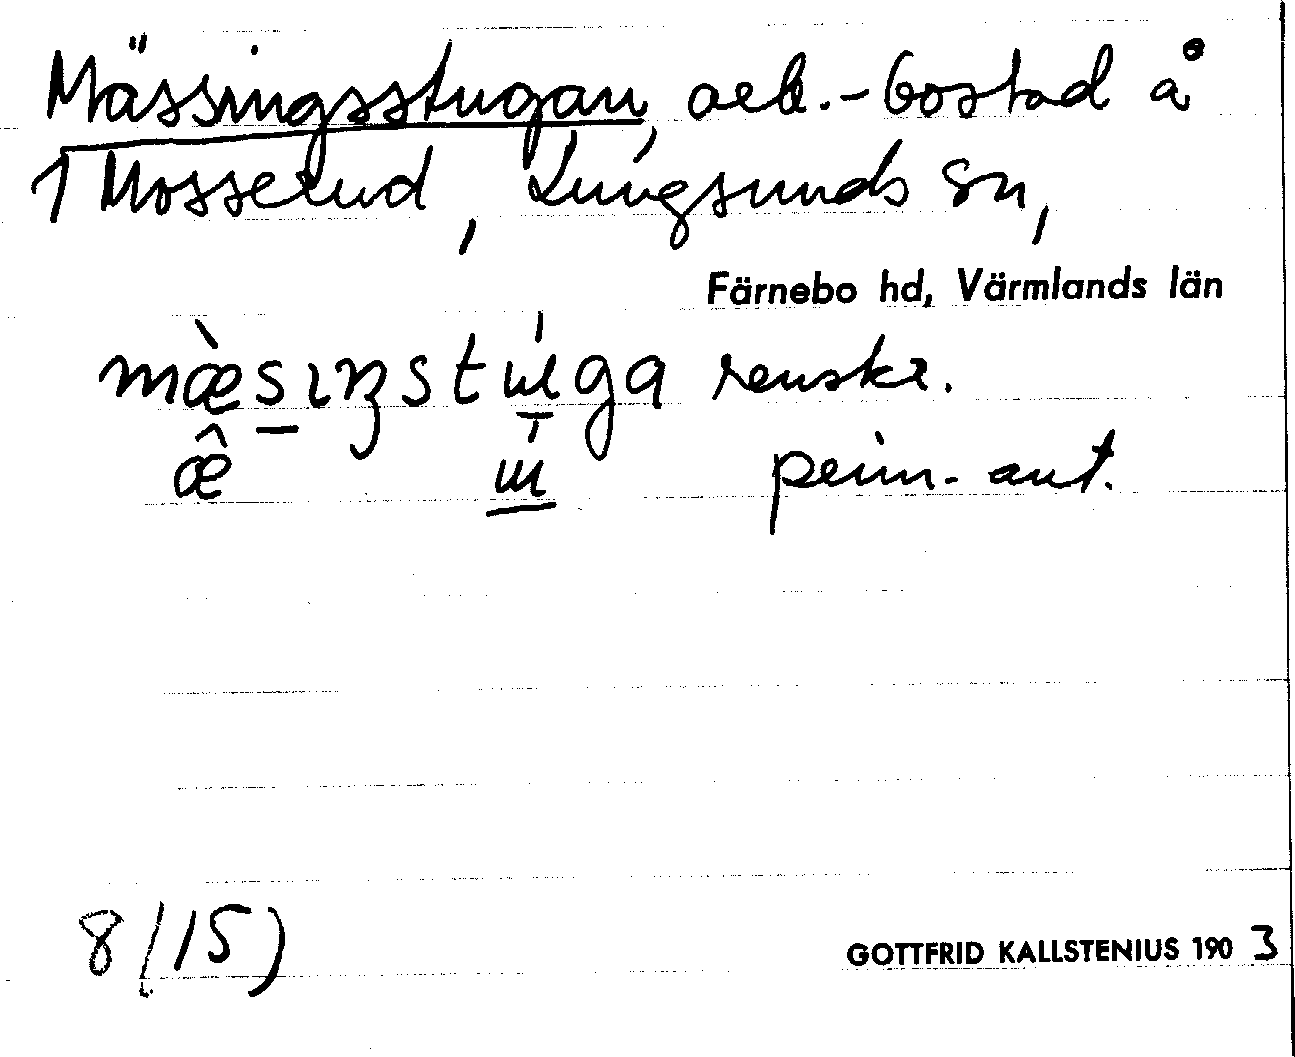 Mässingsstugan, arb.-bostad å
1 Mosserud, Lungsunds sn,
Färnebo hd, Värmlands län
renskr.
æ̂ prim. ant.
8 (15)
GOTTFRID KALLSTENIUS 1903